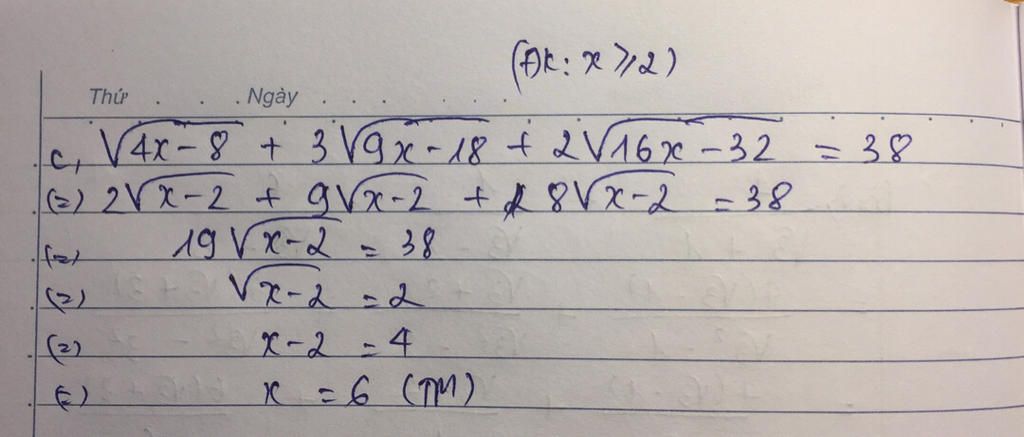 (ĐK: x ⩾ 2)
Thứ . . . . Ngày . . . . . .
c, √(4x-8) + 3√(9x-18) + 2√(16x-32) = 38
(=) 2√(x-2) + 9√(x-2) + 8√(x-2) = 38
(=) 19√(x-2) = 38
(=) √(x-2) = 2
(=) x-2 = 4
(=) x = 6 (TM)